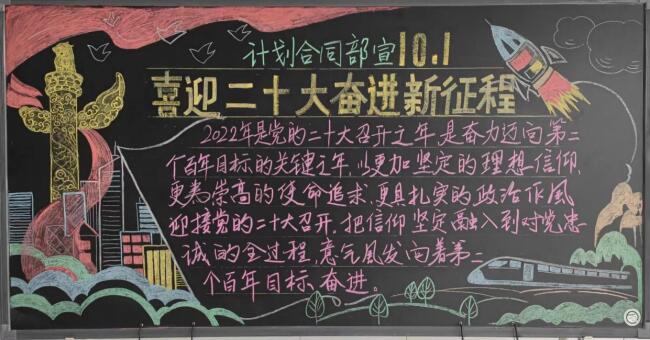 计划合同部宣10.1
喜迎二十大奋进新征程
2022年是党的二十大召开之年,是奋力迈向第二
个百年目标的关键之年,以更加坚定的理想信仰,
更为崇高的使命追求,更具扎实的政治作风
迎接党的二十大召开,把信仰坚定融入到对党忠
诚的全过程,意气风发向着第二
个百年目标、奋进。